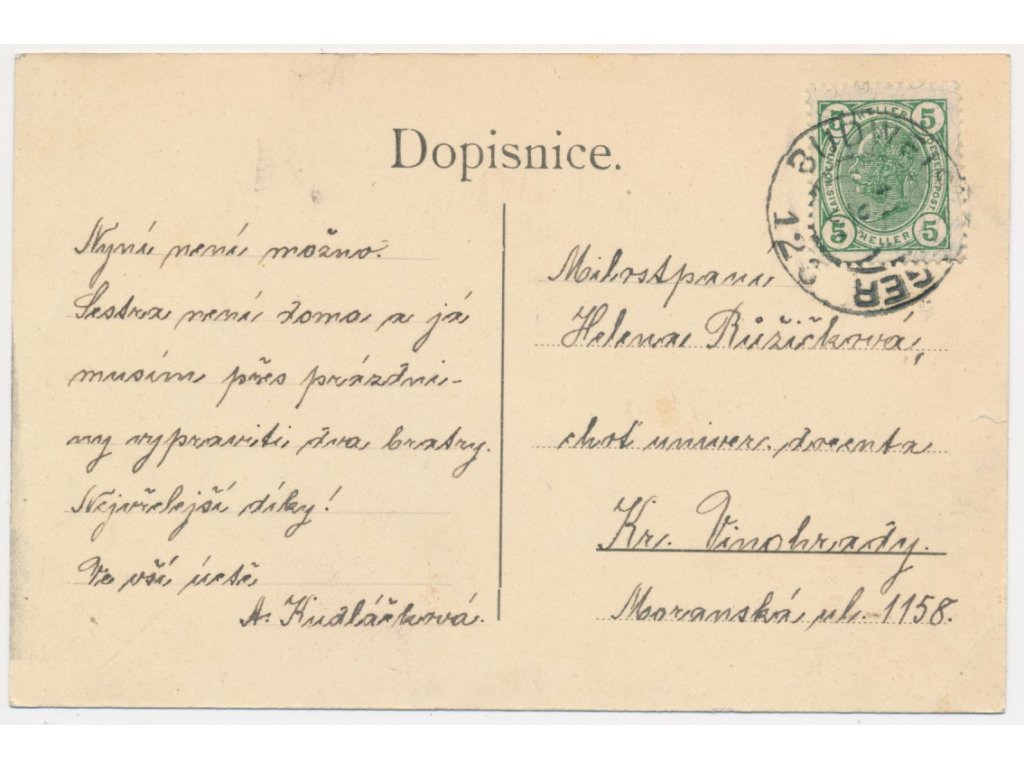 Dopisnice.
Nyní není možno.
Sestra není doma a já
musím přes prázdni-
ny vypraviti dva bratry.
Nejvřelejší díky!
Ve vší úctě
A. Kudláčková.
Milostpaní
Helena Růžičková,
choť univer. docenta
Kr. Vinohrady.
Moravská ul. 1158.
5 HELLER 5
5 HELLER 5